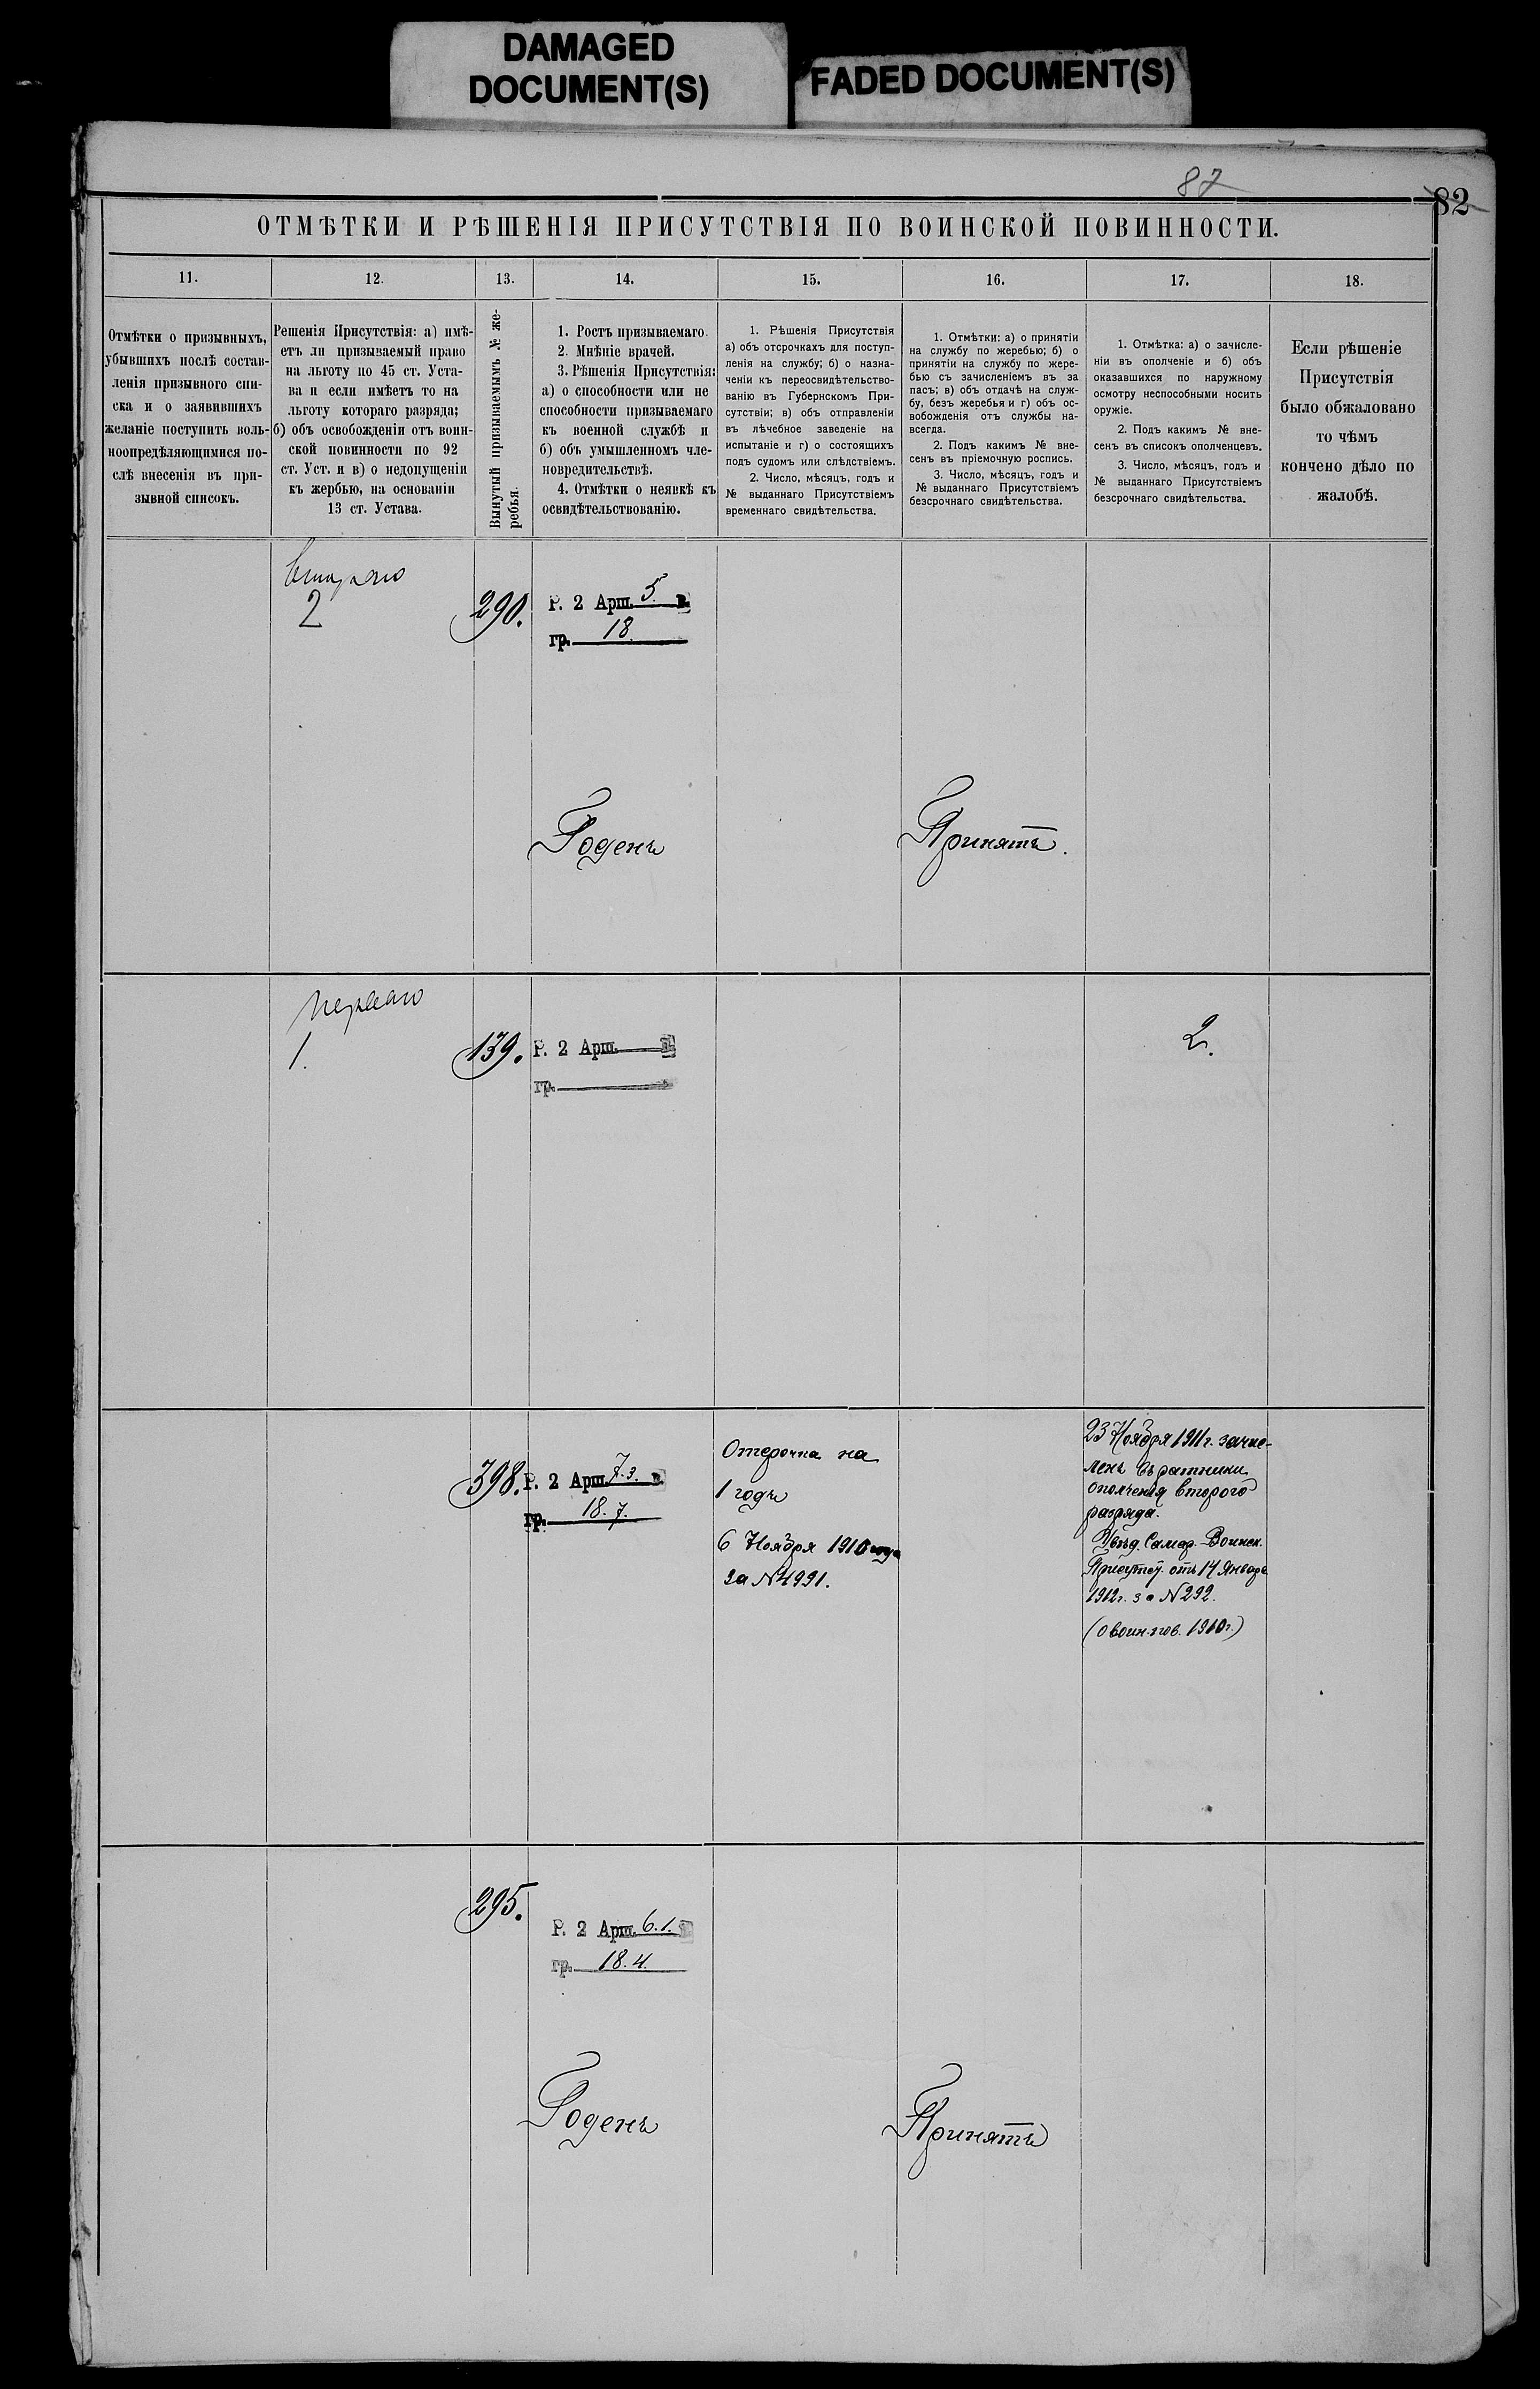 DAMAGED
DOCUMENT(S)
FADED DOCUMENT(S)
87
82
ОТМѢТКИ И РѢШЕНІЯ ПРИСУТСТВІЯ ПО ВОИНСКОЙ ПОВИННОСТИ.
11.
12.
13.
14.
15.
16.
17.
18.
Отмѣтки о призывныхъ,
убывшихъ послѣ состав-
ленія призывного спи-
ска и о заявившихъ
желаніе поступить воль-
ноопредѣляющимися по-
слѣ внесенія въ при-
зывной списокъ.
Решенія Присутствія: а) имѣ-
етъ ли призываемый право
на льготу по 45 ст. Уста-
ва и если имѣетъ то на
льготу котораго разряда;
б) объ освобожденіи отъ воин-
ской повинности по 92
ст. Уст. и в) о недопущеніи
къ жербью, на основаніи
13 ст. Устава.
Вынутый призываемымъ № же-
ребья.
1. Ростъ призываемаго.
2. Мнѣніе врачей.
3. Рѣшенія Присутствія:
а) о способности или не
способности призываемаго
къ военной службѣ и
б) объ умышленномъ чле-
новредительствѣ.
4. Отмѣтки о неявкѣ къ
освидѣтельствованію.
1. Рѣшенія Присутствія
а) объ отсрочкахъ для поступ-
ленія на службу; б) о назна-
ченіи къ переосвидѣтельство-
ванію въ Губернскомъ При-
сутствіи; в) объ отправленіи
въ лѣчебное заведеніе на
испытаніе и г) о состоящихъ
подъ судомъ или слѣдствіемъ.
2. Число, мѣсяцъ, годъ и
№ выданнаго Присутствіемъ
временнаго свидѣтельства.
1. Отмѣтки: а) о принятіи
на службу по жеребью; б) о
принятіи на службу по жере-
бью съ зачисленіемъ въ за
пасъ; в) объ отдачѣ на служ-
бу, безъ жеребья и г) объ ос-
вобожденія отъ службы на-
всегда.
2. Подъ какимъ № вне-
сенъ въ пріемочную роспись.
3. Число, мѣсяцъ, годъ и
№ выданнаго Присутствіемъ
безсрочнаго свидѣтельства.
1. Отмѣтка: а) о зачисле-
ніи въ ополченіе и б) объ
оказавшихся по наружному
осмотру неспособными носить
оружіе.
2. Подъ какимъ № вне-
сенъ въ списокъ ополченцевъ.
3. Число, мѣсяцъ, годъ и
№ выданнаго Присутствіемъ
безсрочнаго свидѣтельства.
Если рѣшеніе
Присутствія
было обжаловано
то чѣмъ
кончено дѣло по
жалобѣ.
второго
2
290.
Р. 2 Арш. 5. в.
гр. 18.
Годенъ
Принятъ.
перваго
1.
139.
Р. 2 Арш. в.
гр.
2.
398.
Р. 2 Арш. 7.3. в.
гр. 18.7.
Отсрочка на
1 годъ
6 Ноября 1910 года
за № 4991.
23 Ноября 1911 г. зачис-
ленъ въ ратники
ополченія второго
разряда.
Увѣд. Самар. Воинск.
Присутст. отъ 14 Января
1912 г. за № 292.
(о воин. пов. 1910 г.)
295.
Р. 2 Арш. 6.1. в.
гр. 18.4.
Годенъ
Принятъ